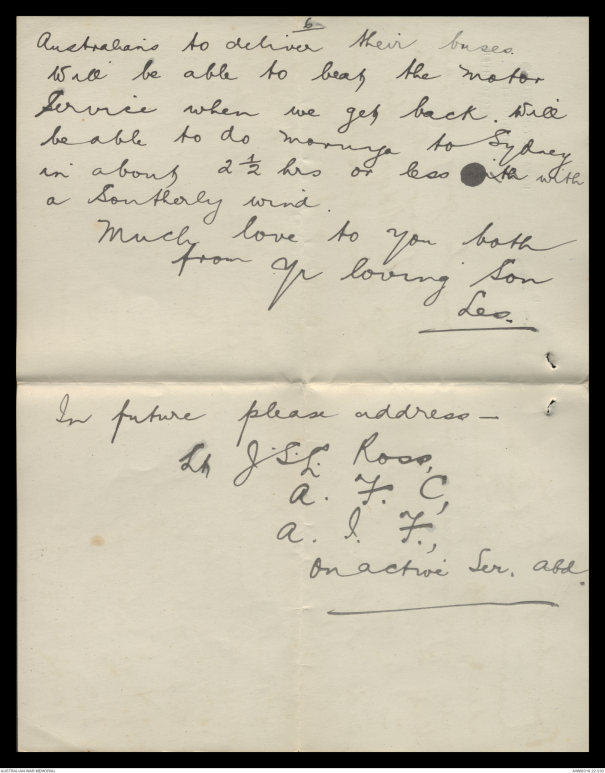 6
Australians to deliver their buses.
Will be able to beat the motor
Service when we get back. Will
be able to do Moruya to Sydney
in about 2 1/2 hrs or less with
a Southerly wind.
Much love to you both
from Yr loving Son
Les.
In future please address —
Lt J.S.L. Ross,
A. F. C,
A. I. F.,
On active Ser. abd.
AUSTRALIAN WAR MEMORIAL